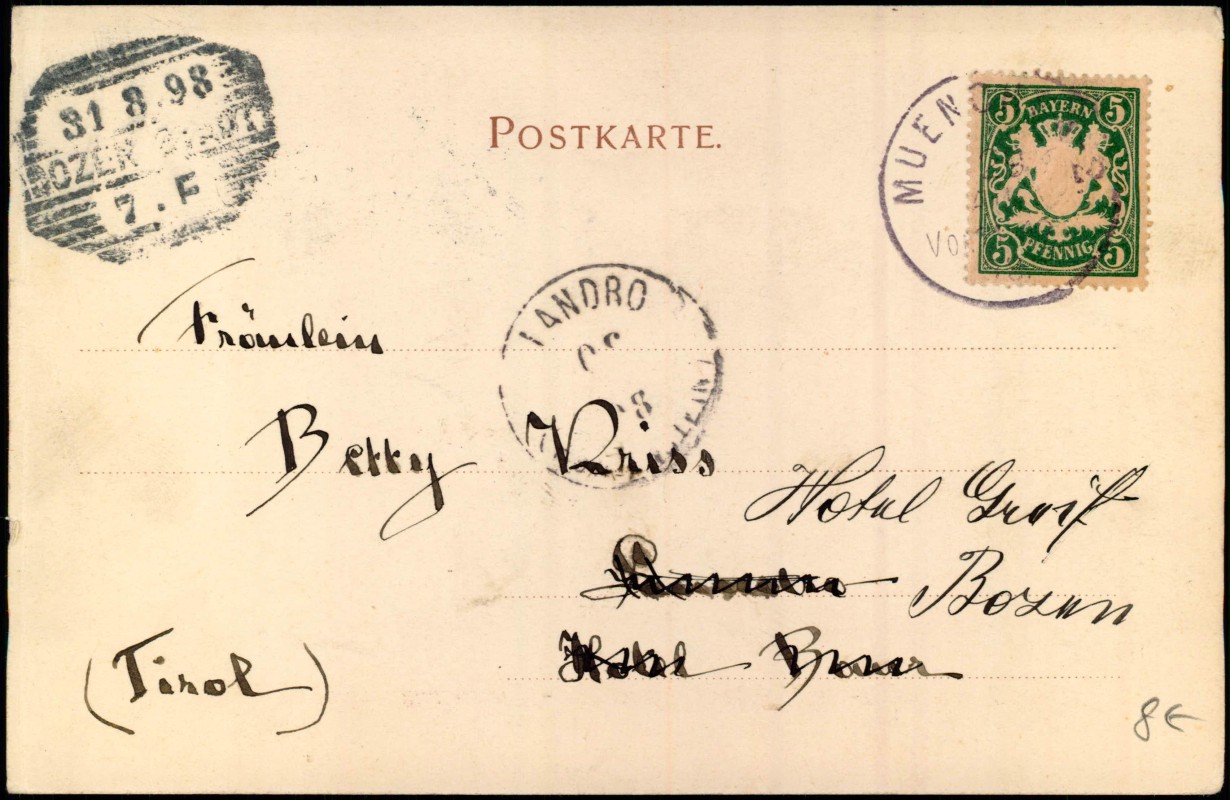 31 8 98
BOZEN STADT
7. F
POSTKARTE.
MUEN
VO
5 BAYERN 5
5 PFENNIG 5
LANDRO
Fräulein
Betty Kriss
Hotel Greif
Bozen
Hotel
(Tirol)
8 €